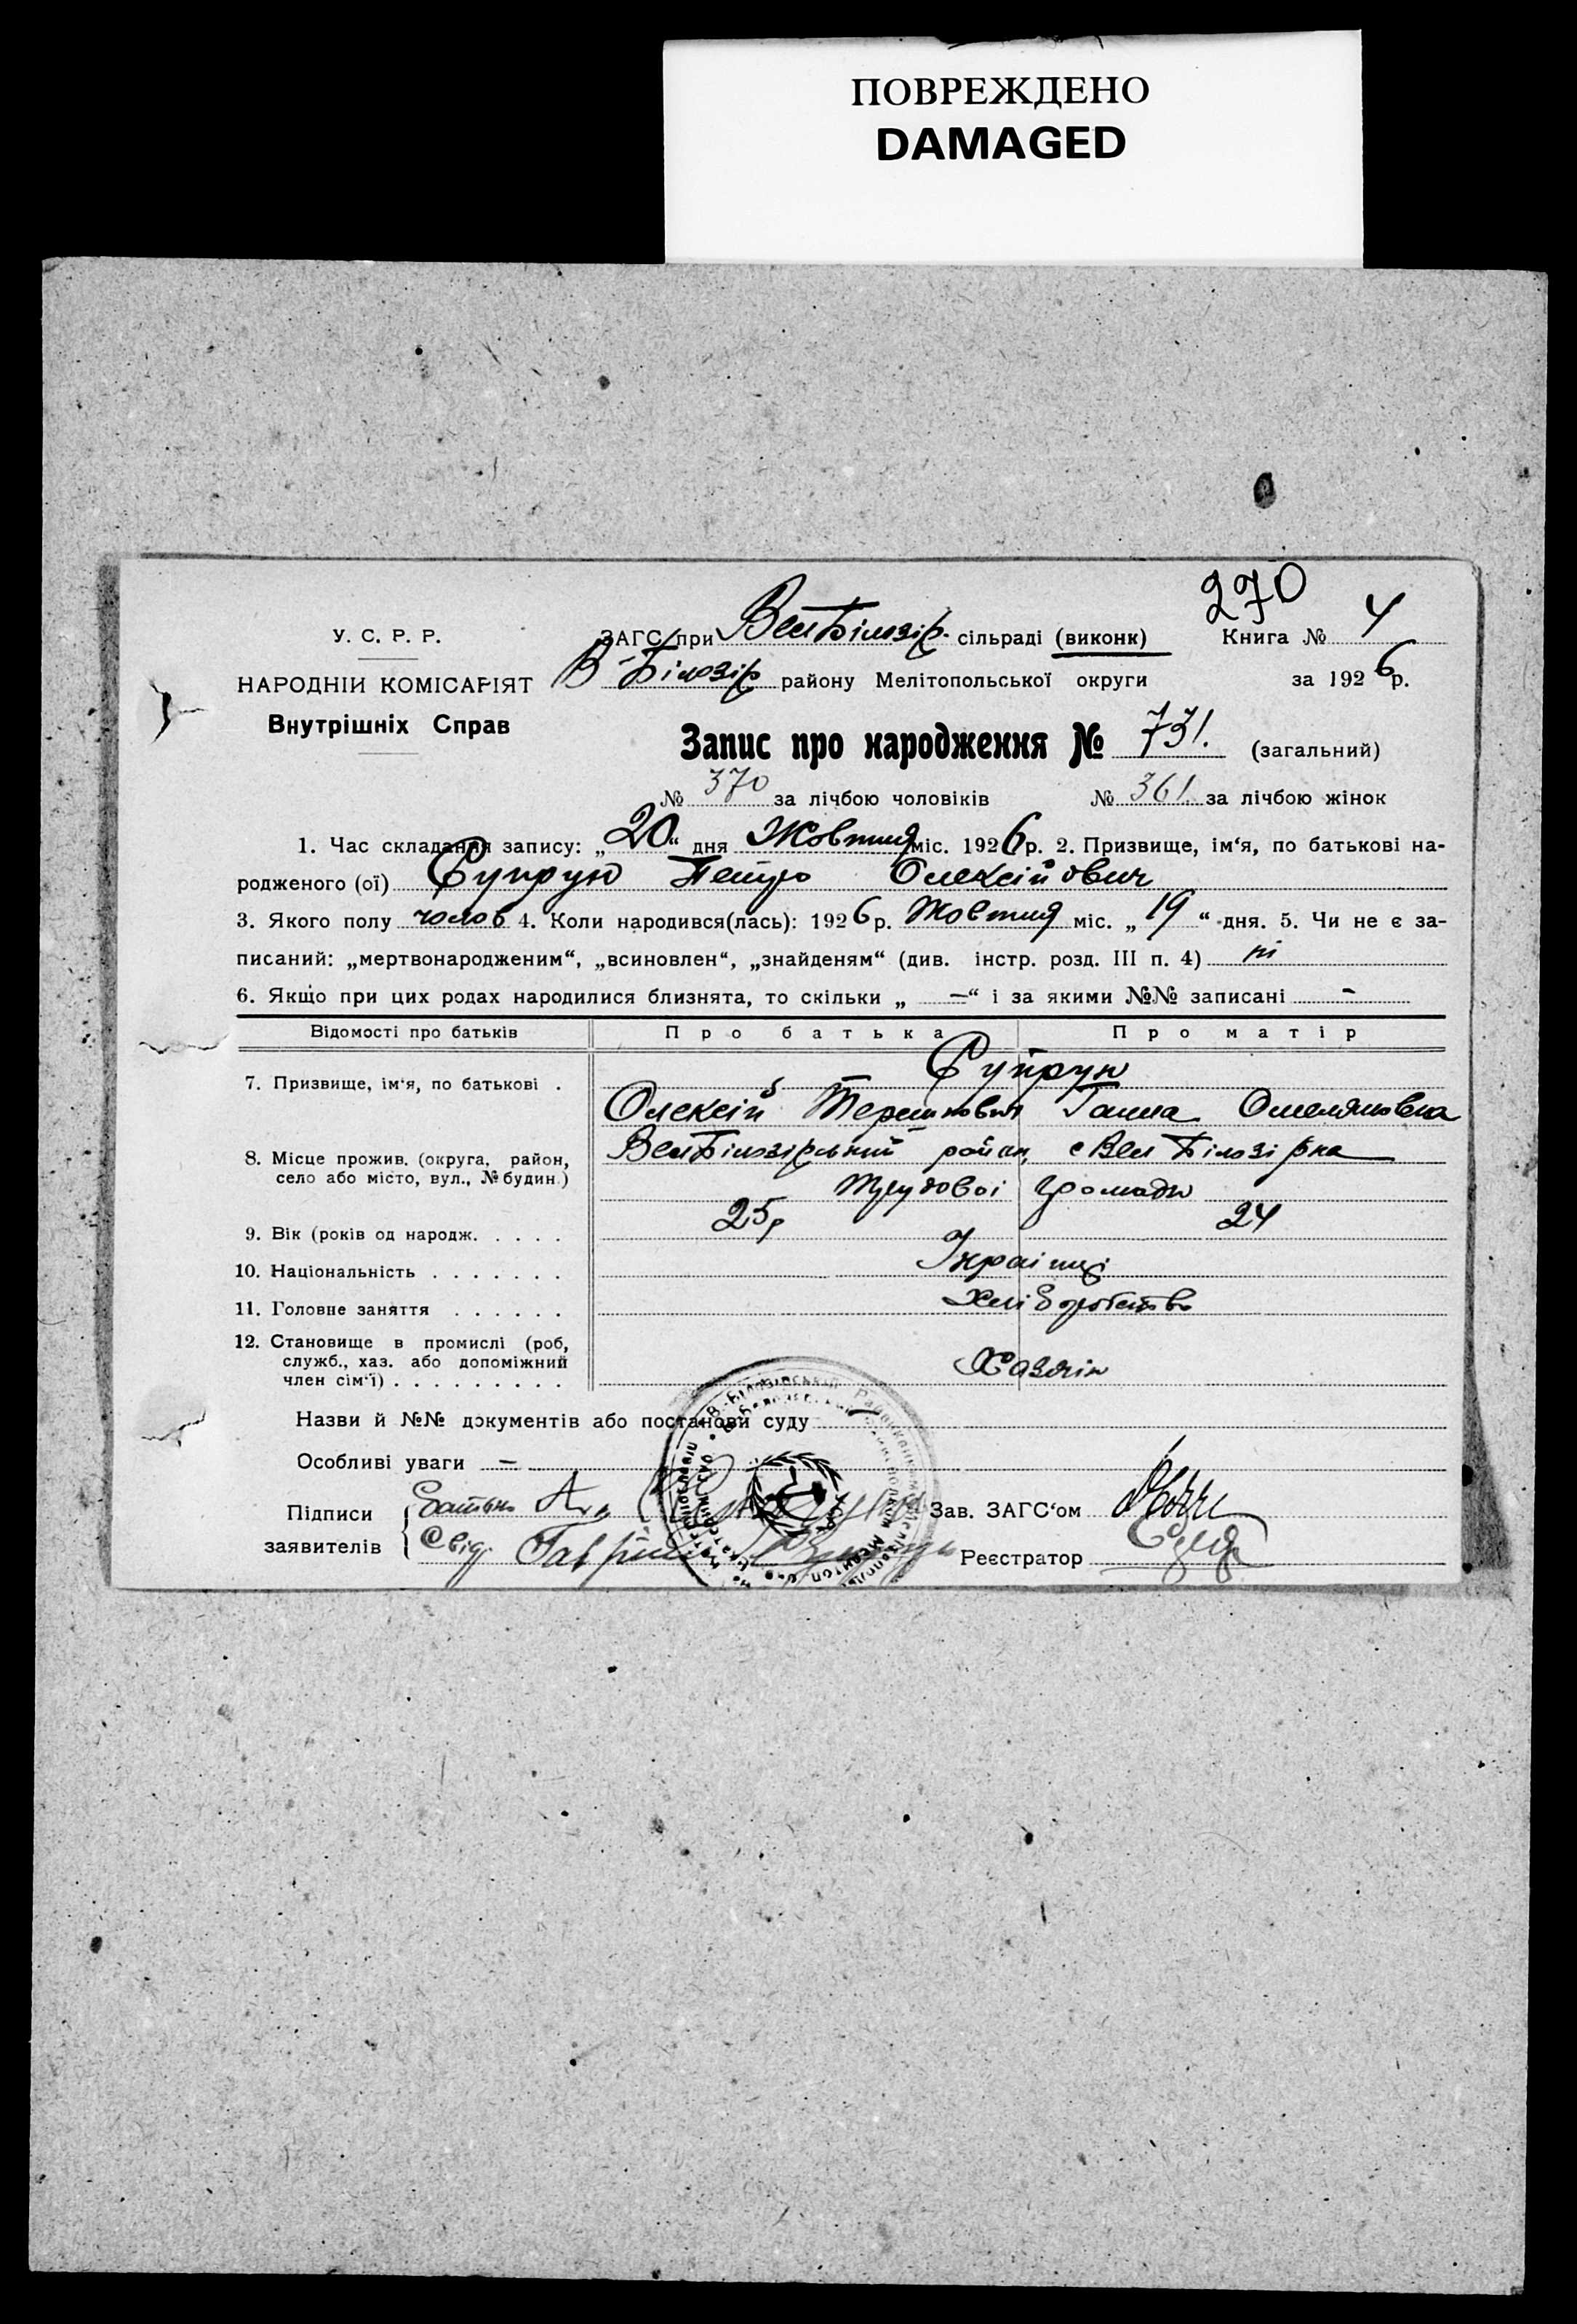 ПОВРЕЖДЕНО
DAMAGED
270
У. С. Р. Р.
ЗАГС при ВелБілозір. сільраді (виконк) Книга № 4
НАРОДНІЙ КОМІСАРІЯТ
В-Білозір району Мелітопольської округи за 1926 р.
Внутрішніх Справ
Запис про народження № 731. (загальний)
№ 370 за лічбою чоловіків № 361. за лічбою жінок
1. Час складання запису: „20“ дня Жовтня міс. 1926 р. 2. Призвище, ім‘я, по батькові на-
родженого (ої) Супрун Петро Олексійович
3. Якого полу чолов 4. Коли народився(лась): 1926 р. Жовтня міс. „19“ дня. 5. Чи не є за-
писаний: „мертвонародженим“, „всиновлен“, „знайденям“ (див. інстр. розд. III п. 4) ні
6. Якщо при цих родах народилися близнята, то скільки „—“ і за якими №№ записані -
Відомості про батьків Про батька Про матір
Супрун
7. Призвище, ім‘я, по батькові .
Олексій Терешкович Ганна Омеляновна
8. Місце прожив. (округа, район, ВелБілозірський район, с Вел Білозірка
село або місто, вул., № будин.)
Трудовоі громади
9. Вік (років од народж. . . . . 25р 24
10. Національність . . . . . . . Українці
11. Головне заняття . . . . . . Хліборобство
12. Становище в промислі (роб,
служб., хаз. або допоміжний
член сім‘ї) . . . . . . . . . Хазяїн
Назви й №№ документів або постанови суду —
Особливі уваги —
Підписи Батько Зав. ЗАГС‘ом
заявителів Свід. Реєстратор